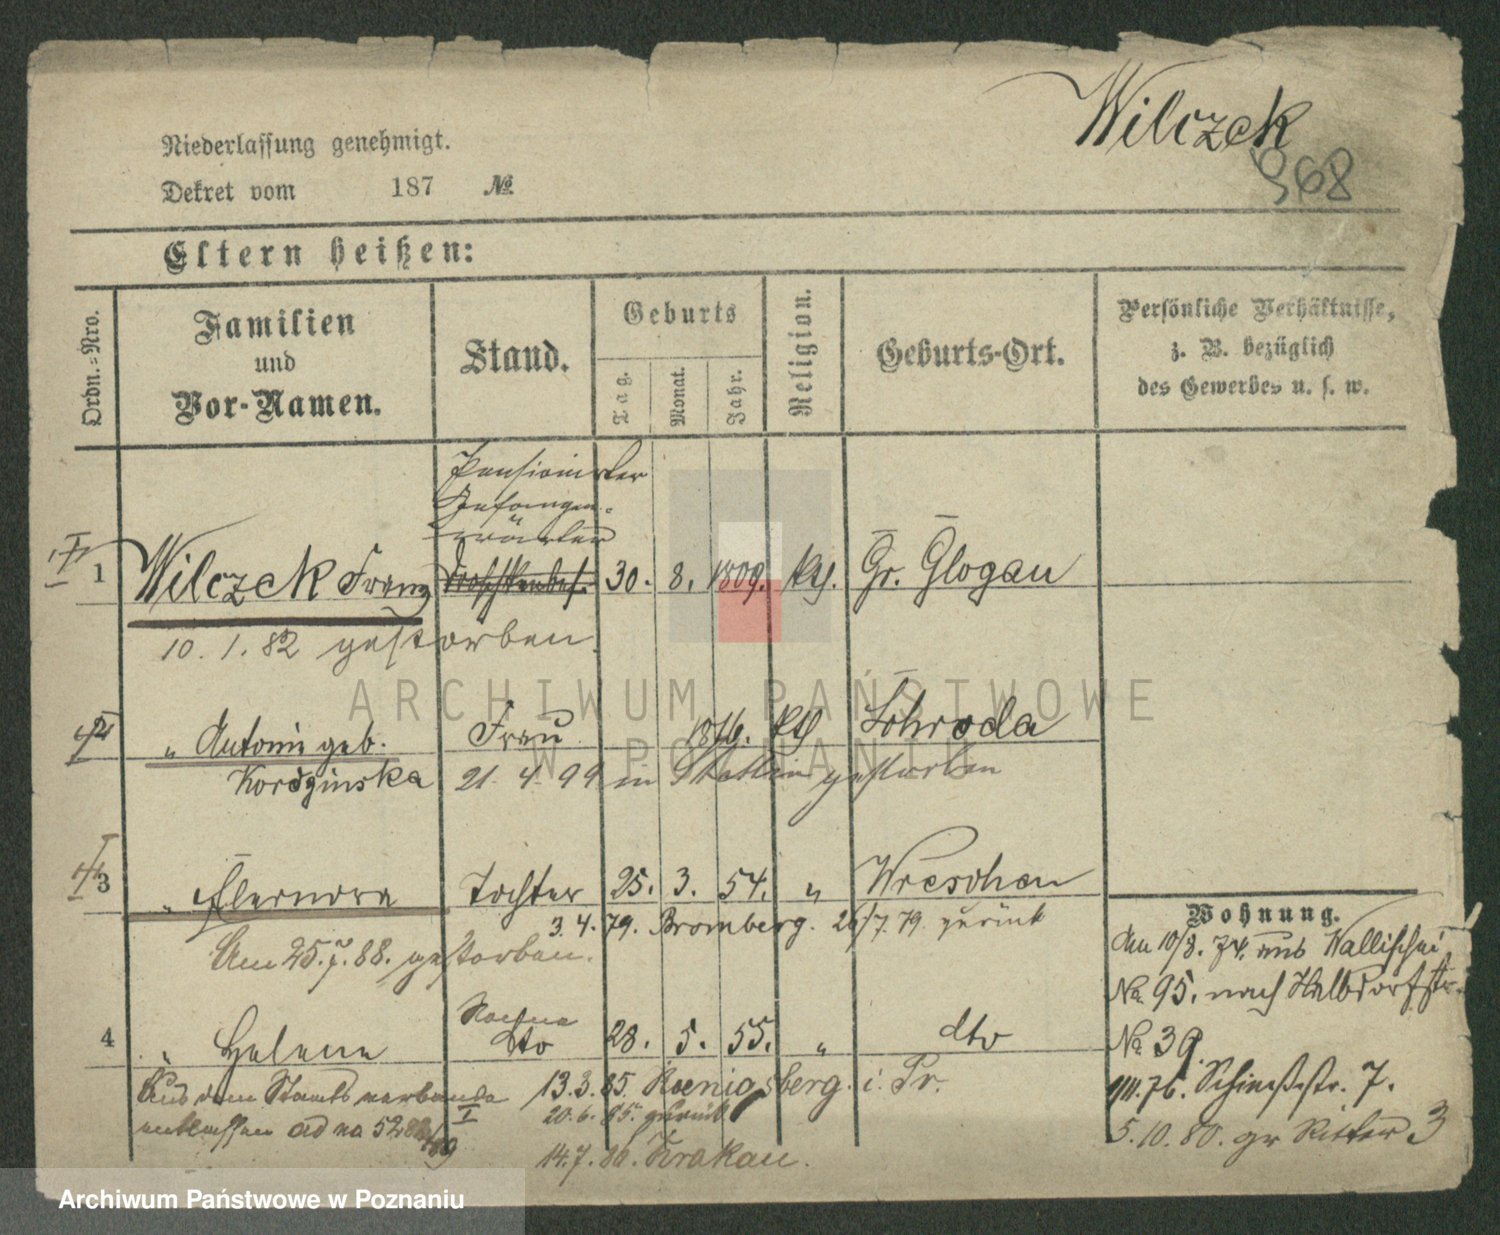 Wilczek
968
Niederlassung genehmigt.
Dekret vom 187 №
Eltern heißen:
Ordn.-Nro.
Familien
und
Vor-Namen.
Stand.
Geburts
Tag.
Monat.
Jahr.
Religion.
Geburts-Ort.
Persönliche Verhältnisse,
z. B. bezüglich
des Gewerbes u. s. w.
Pensionirter
Gefangen-
wärter
1 Wilczek Franz 30. 8. 1809. kth. Gr. Glogau
10. 1. 82 gestorben.
2 " Antonie geb. Frau 1816. kth Schroda
Kordzinska 21. 4. 99 in Stettin gestorben
3 " Eleonora Tochter 25. 3. 54. " Wreschen
3. 4. 79. Bromberg. 26/7. 79. zurück
Am 25. 7. 88. gestorben.
4 " Helene dto 28. 5. 55. " dto
Aus dem Staatsverbande
entlassen ad no
13. 3. 85. Koenigsberg. i. Pr.
20. 6. 85. zurück
14. 7. 86. Krakau.
Wohnung.
Am 10/3. 74. aus Wallischei
No 95. nach Halbdorfstr.
No 39.
Schiessstr. 7.
5. 10. 80. gr Ritter 3
ARCHIWUM PAŃSTWOWE
W POZNANIU
Archiwum Państwowe w Poznaniu